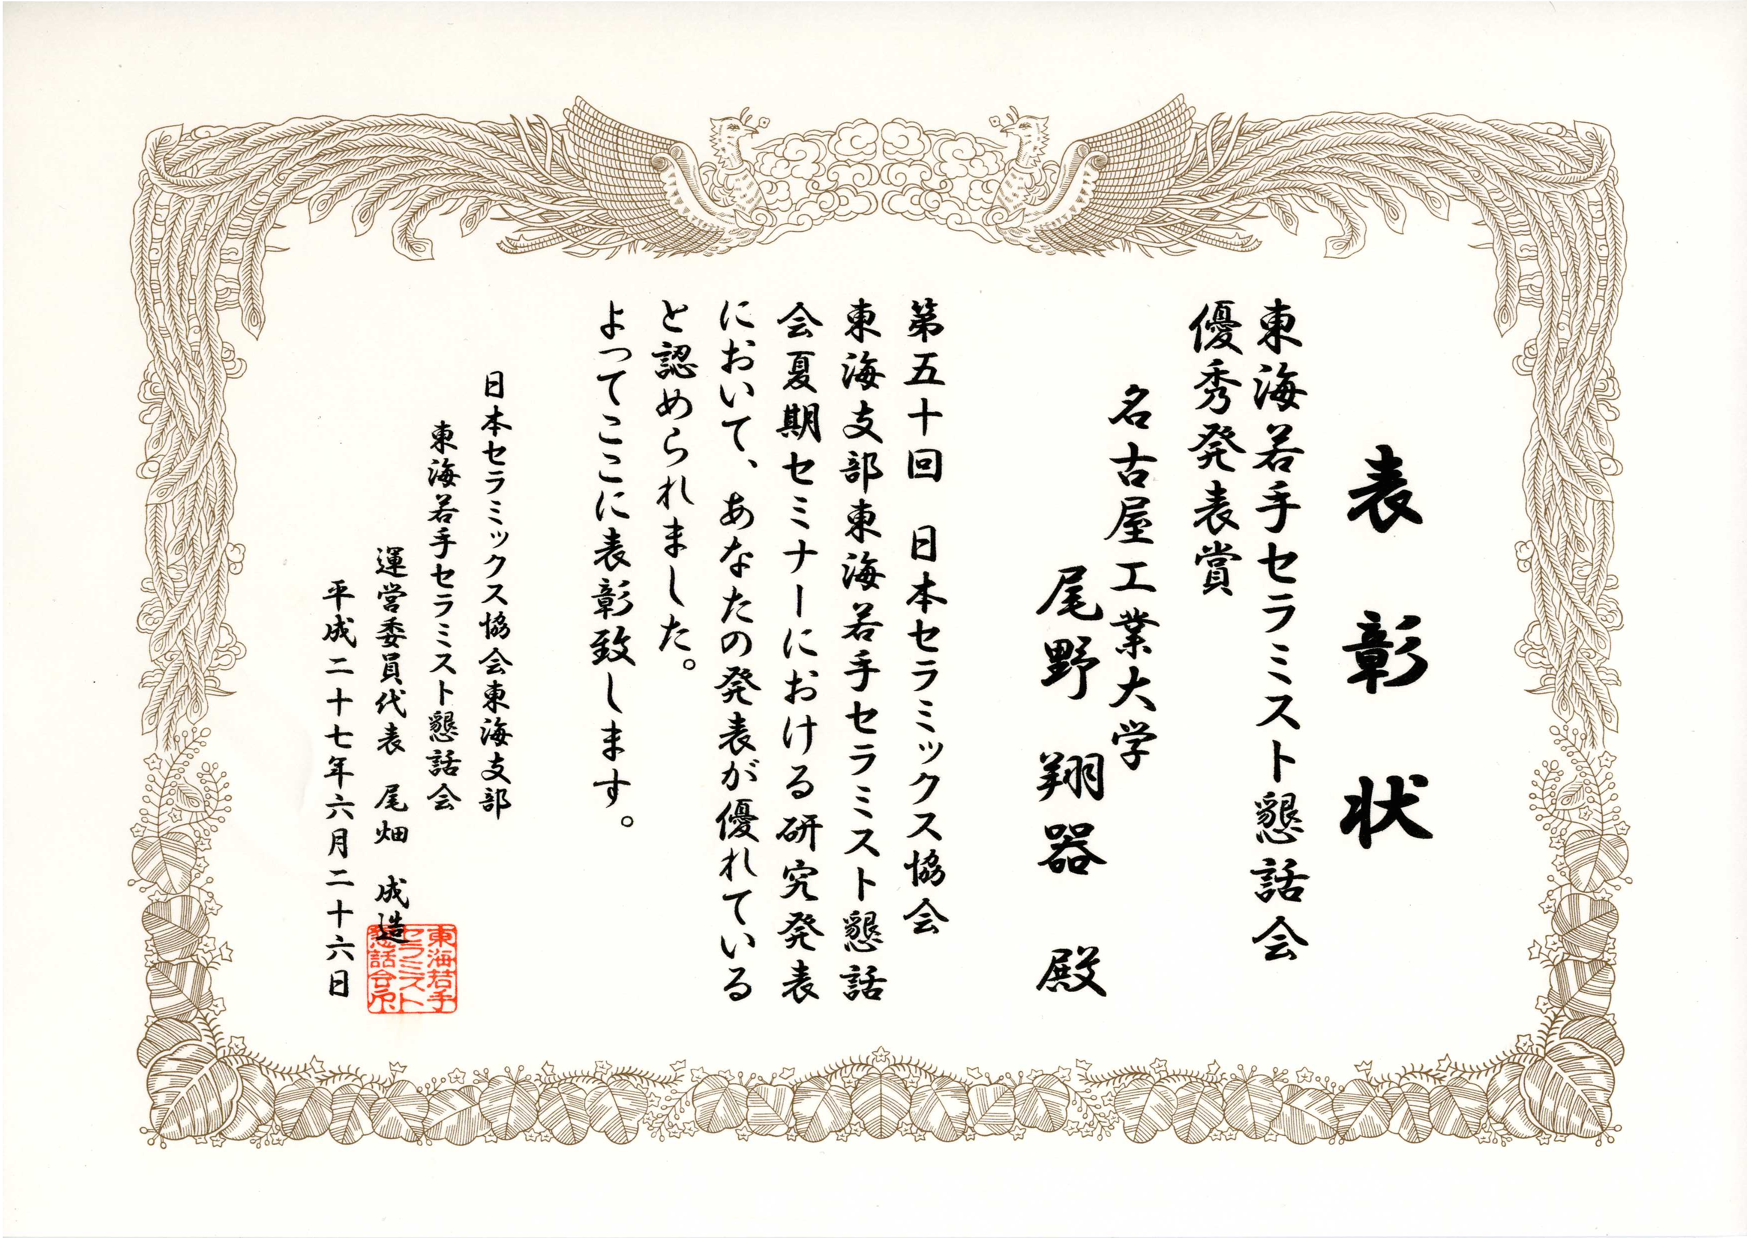 表彰状
東海若手セラミスト懇話会
優秀発表賞
名古屋工業大学
尾野 翔器 殿
第五十回 日本セラミックス協会
東海支部東海若手セラミスト懇話
会夏期セミナーにおける研究発表
において、あなたの発表が優れている
と認められました。
よってここに表彰致します。
日本セラミックス協会東海支部
東海若手セラミスト懇話会
運営委員代表 尾畑 成造
平成二十七年六月二十六日
東海若手
セラミスト
懇話会印